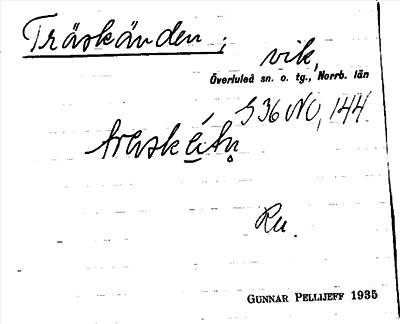 Träskänden;
vik,
Överluleå sn. o. tg., Norrb. län
S 36 NO, 144
Ru.
GUNNAR PELLIJEFF 1935